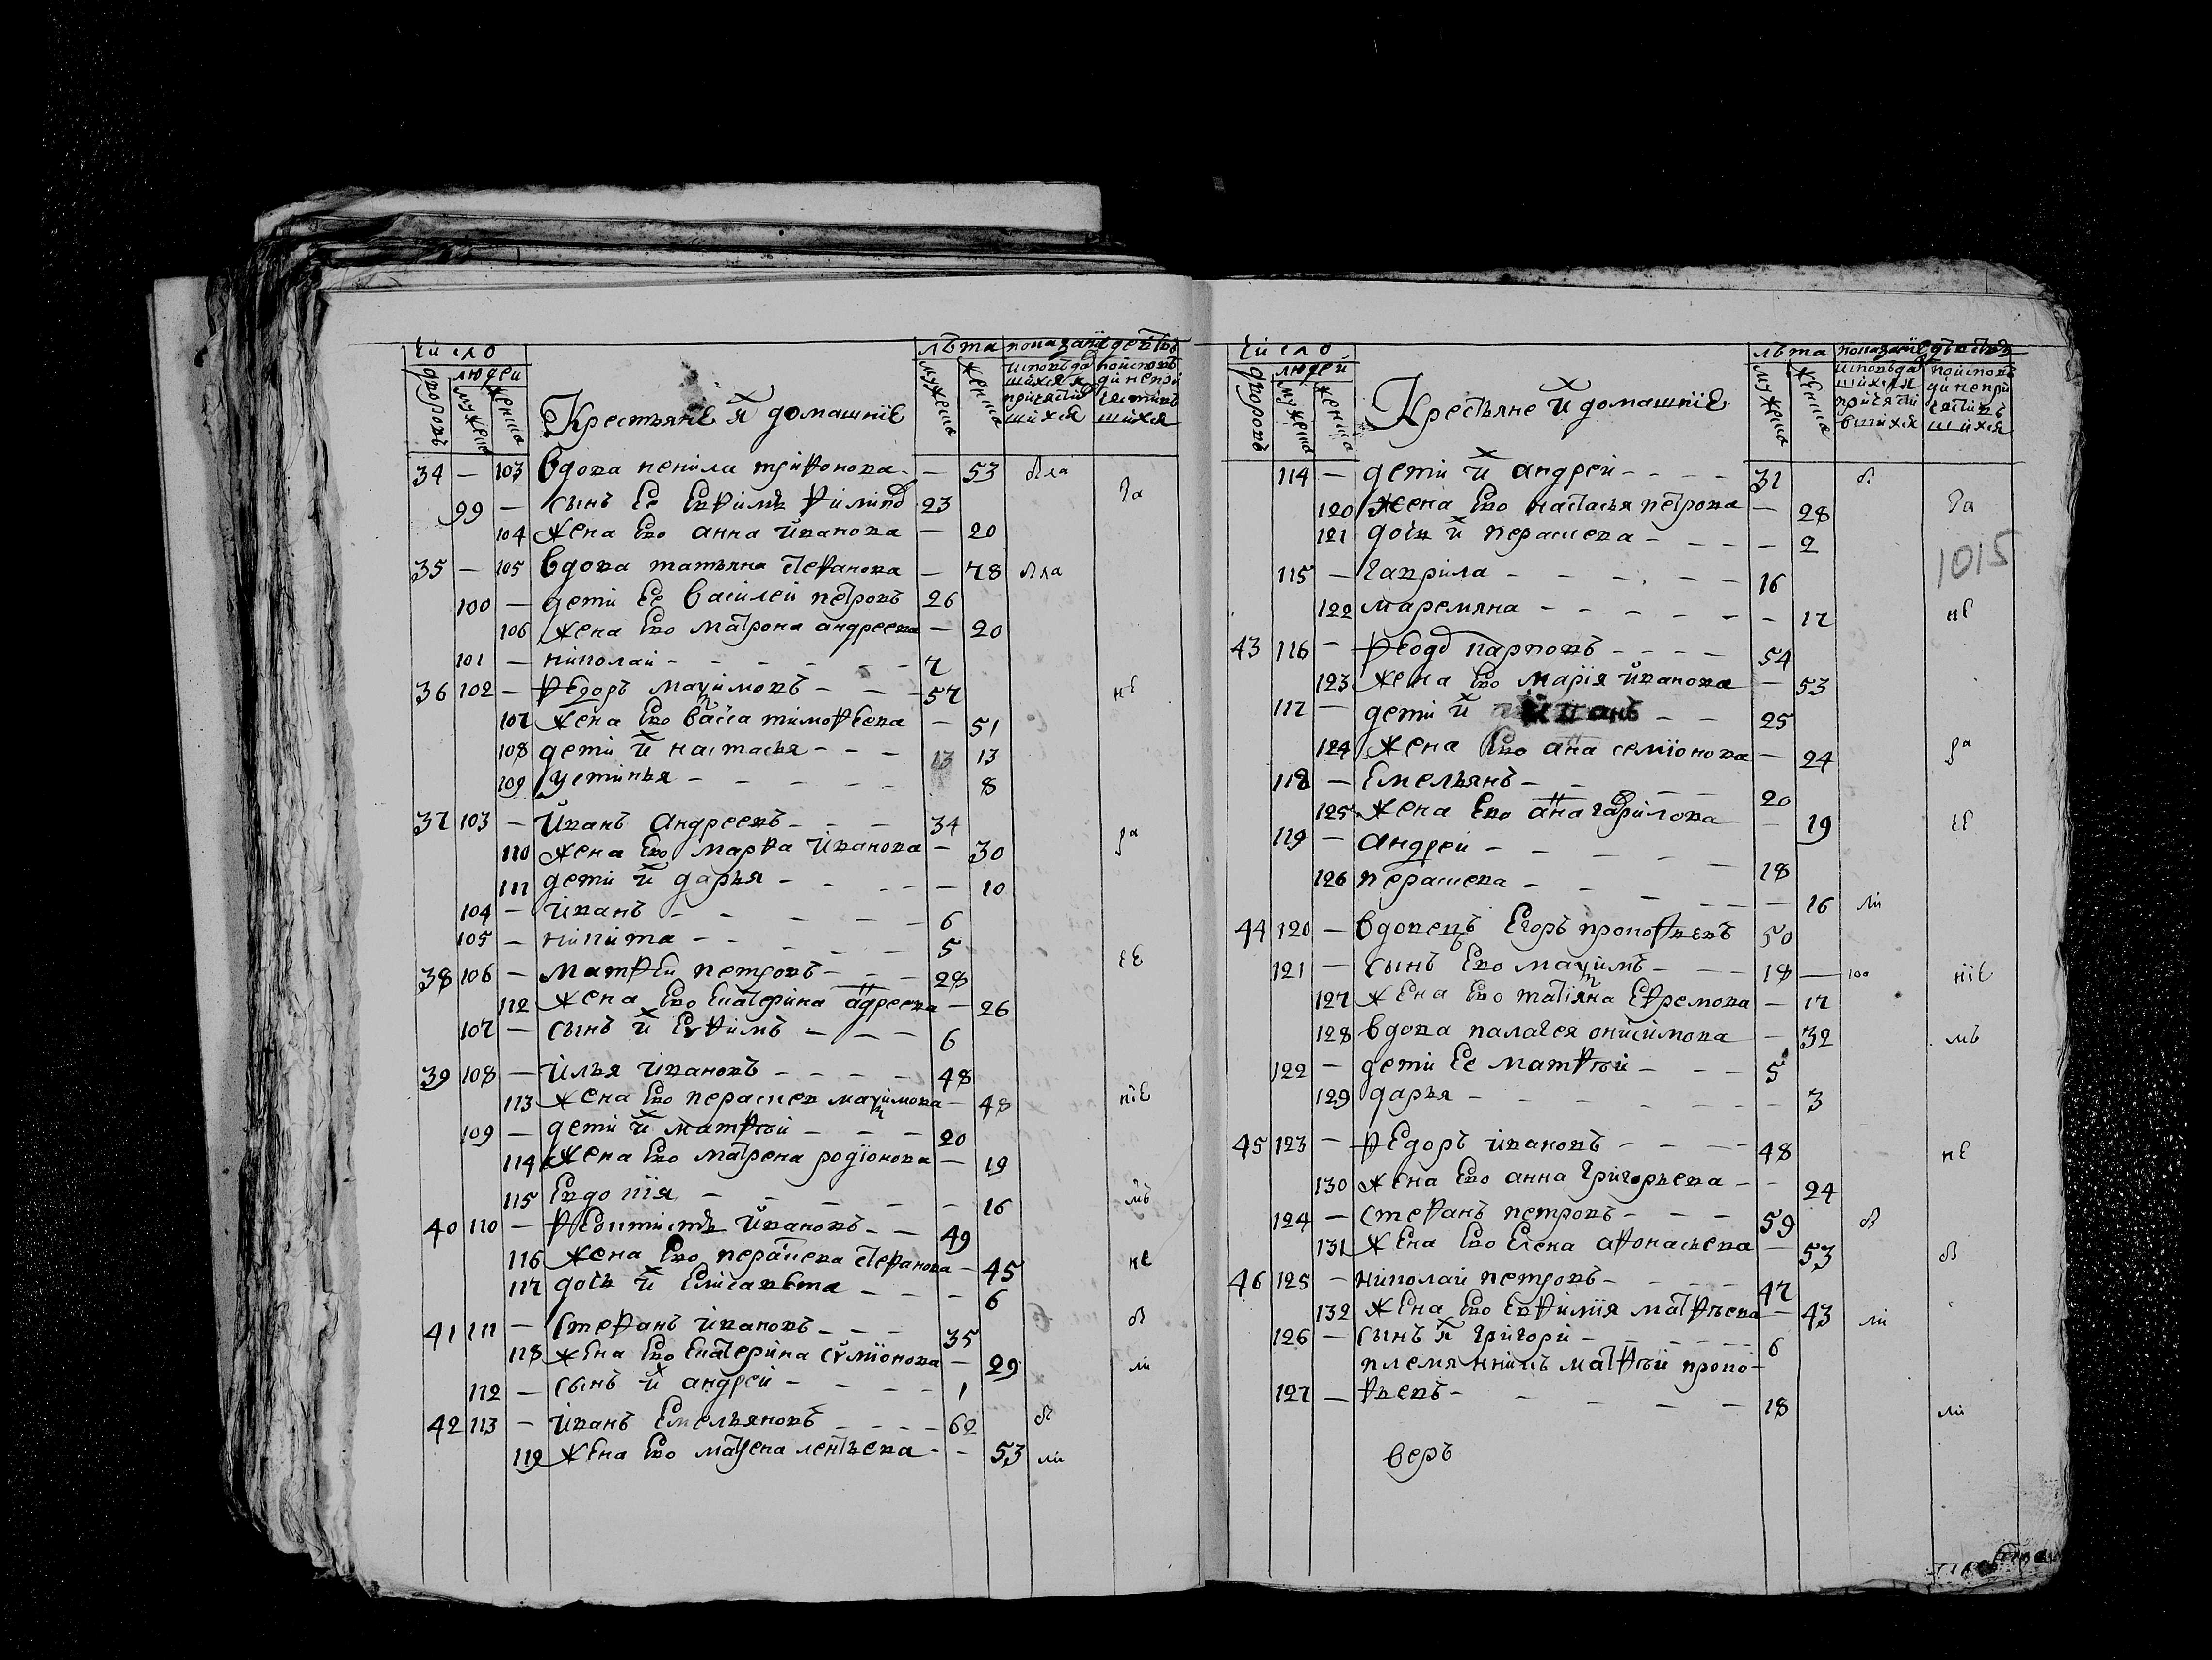 Число
людей
дворовъ
мужеска
женска
Крестьяне и̑ домашние
лѣта
мужеска
женска
показание действъ
34 — 103 вдова ненила трифонова — 53
99 — сынъ ее евфимъ филипо 23
104 жена ево анна иванова — 20
35 — 105 вдова татьяна стефанова — 78
100 — дети ее василей петровъ 26
106 жена ево матрона андреева — 20
101 — николай — 7
36 102 — федоръ маѯимовъ — 57
107 жена ево васса тимофеева — 51
108 дети и̑х настасья — 13 13
109 устинья — 8
37 103 — иванъ андреевъ — 34
110 жена ево марфа иванова — 30
111 дети и̑х дарья — 10
104 — иванъ — 6
105 — никита — 5
38 106 — матфей петровъ — 28
112 жена ево екатерина адреева — 26
107 — сынъ и̑х еѵфимъ — 6
39 108 — илья ивановъ — 48
113 жена ево парасков маѯимова — 48
109 — дети и̑х матфѣй — 20
114 жена ево матрена родионова — 19
115 евдокия — 16
40 110 — федитистъ ивановъ — 49
116 жена ево параскева стефанова — 45
117 дочь и̑х елисавета — 6
41 111 — стефанъ ивановъ — 35
118 жена ево екатерина сѵмионова — 29
112 — сынъ и̑х андрей — 1
42 113 — иванъ емельяновъ — 62
119 жена ево матрена леонтьева — 53
Число
людей
дворовъ
мужеска
женска
Крестьяне и̑ домашние
лѣта
мужеска
женска
показание действъ
114 — дети и̑х андрей — 31
120 жена ево настасья петрова — 28
121 дочь и̑х параскева — 2
1015
115 — гаврила — 16
122 маремяна — 17
43 116 — феодо карповъ — 54
123 жена ево мария иванова — 53
117 — дети и̑х — 25
124 жена ево анна семионова — 24
118 — емельянъ — 20
125 жена ево анна гаврилова — 19
119 — андрей — 18
126 параскева — 16
44 120 — вдовецъ егоръ прокофьевъ 50
121 — сынъ ево маѯимъ — 18
127 жена ево татияна ефремова — 17
128 вдова палагея онисимова — 32
122 — дети ее матфѣй — 5
129 дарья — 3
45 123 — федоръ ивановъ — 48
130 жена ево анна григорьева — 24
124 — стефанъ петровъ — 59
131 жена ево елена афонасьева — 53
46 125 — николай петровъ — 47
132 жена ево евфимия матфѣева — 43
126 — сынъ и̑х григори — 6
племянникъ матфѣй проко-
127 — фьевъ — 18
веръ